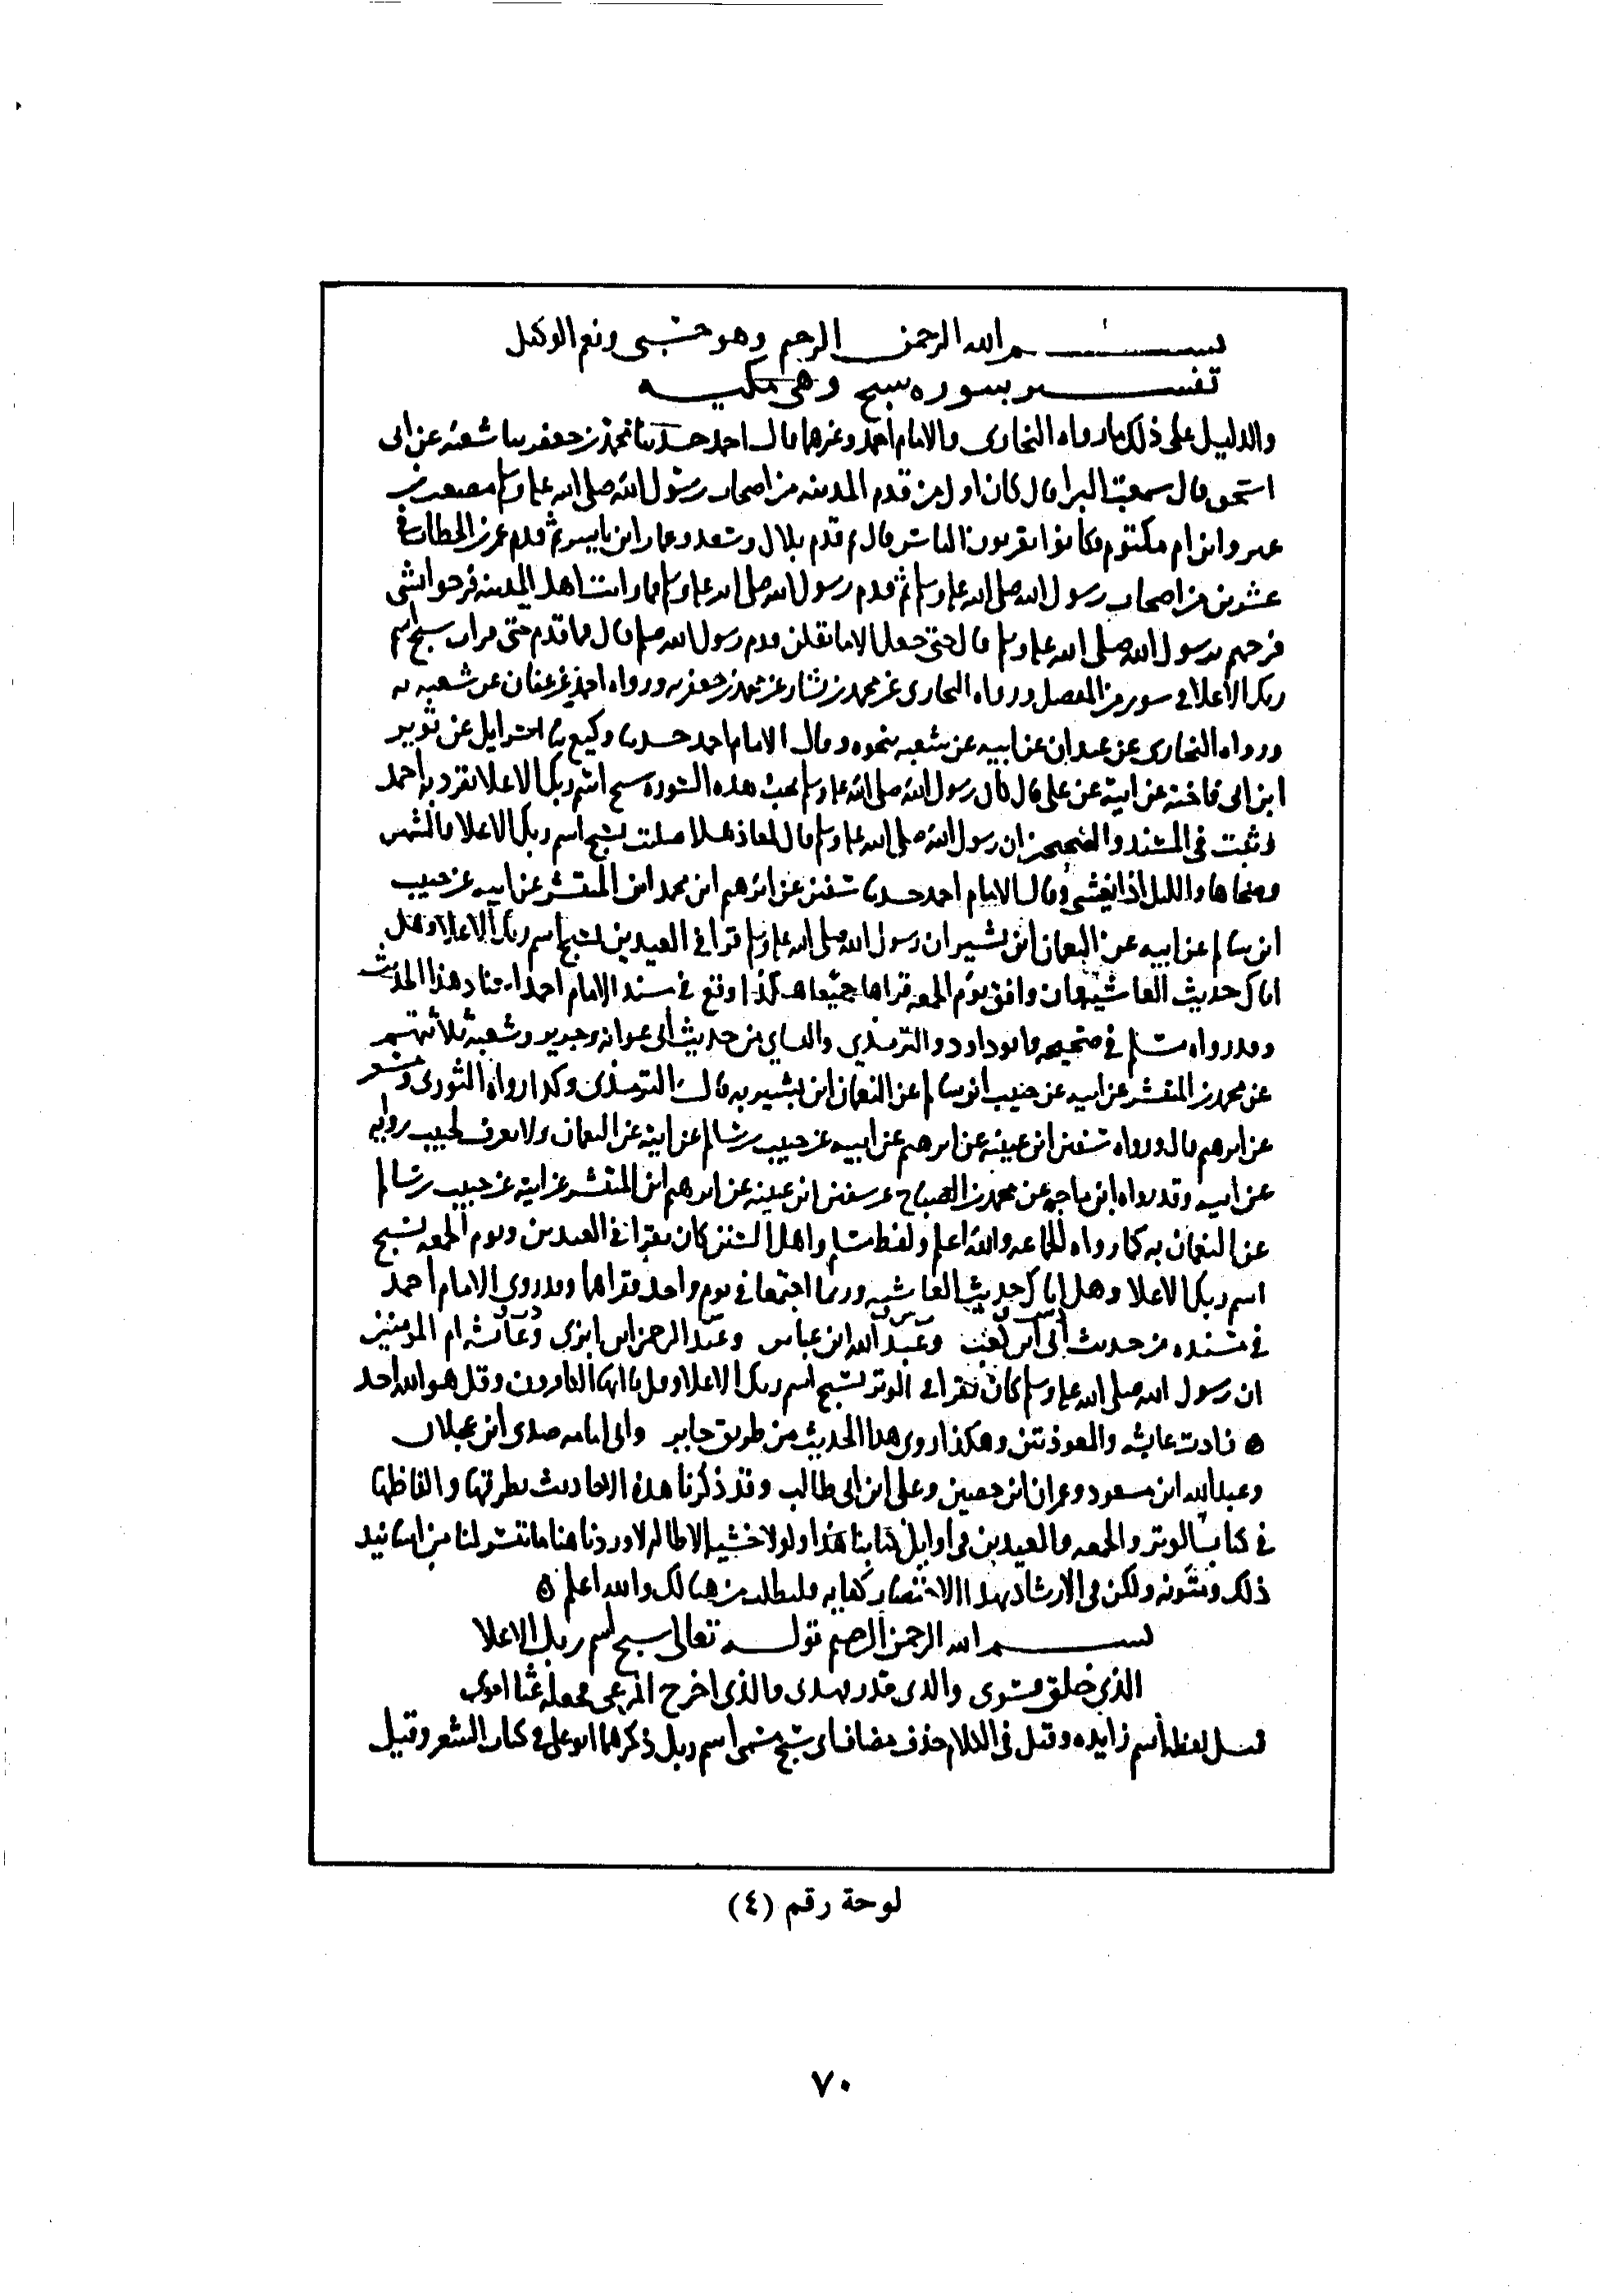 بسم الله الرحمن الرحيم وهو حسبى ونعم الوكيل
تفسير سوره سبح وهى مكيه
والدليل على ذلك ما رواه البخارى والامام احمد وغيرهما قال احمد حدثنا محمد بن جعفر بنا شعبه عن ابى
اسحق قال سمعت البرا قال كان اول من قدم المدينه من اصحاب رسول الله صلى الله عليه وسلم مصعب بن
عمير وابن ام مكتوم فكانوا يقريون الناس قال ثم قدم بلال وسعد وعمار ابن ياسر ثم قدم عمر بن الخطاب فى
عشرين من اصحاب رسول الله صلى الله عليه وسلم ثم قدم رسول الله صلى الله عليه وسلم فما رايت اهل المدينه فرحوا بشى
فرحهم برسول الله صلى الله عليه وسلم قال حتى جعل الاما يقلن قدم رسول الله صلم قال فما قدم حتى قرات سبح اسم
ربك الاعلا فى سور من المفصل ورواه البخارى عن محمد بن بشار عن محمد بن جعفر به ورواه احمد عن عفان عن شعبه به
ورواه البخارى عن عبدان عن ابيه عن شعبه بنحوه وقال الامام احمد حدثنا وكيع ثنا اسرايل عن ثوير
ابن ابى فاخته عن ابيه عن على قال كان رسول الله صلى الله عليه وسلم يحب هذه السوره سبح اسم ربك الاعلا تفرد به احمد
وثبت فى المسند والصحيحين ان رسول الله صلى الله عليه وسلم قال لمعاذ هلا صليت بسبح اسم ربك الاعلا والشمس
وضحاها والليل اذا يغشى وقال الامام احمد حدثنا سفين عن ابرهيم ابن محمد ابن المنتشر عن ابيه عن حبيب
ابن سالم عن ابيه عن النعمان ابن بشير ان رسول الله صلى الله عليه وسلم قرا فى العيدين بسبح اسم ربك الاعلا وهل
اتاك حديث الغاشيه وان وافق يوم الجمعه قراها جميعا هكذا وقع فى مسند الامام احمد اسناد هذا الحديث
وقد رواه مسلم فى صحيحه وابو داود والترمذي والنساي من حديث ابى عوانه وجرير وشعبه ثلاثتهم
عن محمد بن المنتشر عن ابيه عن حبيب ابن سالم عن النعمان ابن بشير به قال الترمذى وكذا رواه الثورى ومسعر
عن ابرهيم قال ورواه سفين ابن عيينه عن ابرهيم عن ابيه عن حبيب بن سالم عن ابيه عن النعمان ولا يعرف لحبيب روايه
عن ابيه وقد رواه ابن ماجه عن محمد بن الصباح عن سفين ابن عيينه عن ابرهيم ابن المنتشر عن ابيه عن حبيب بن سالم
عن النعمان به كما رواه الجماعه والله اعلم ولفظ مسلم واهل السنن كان يقرا فى العيدين ويوم الجمعه بسبح
اسم ربك الاعلا وهل اتاك حديث الغاشيه وربما اجتمعا فى يوم واحد فقراهما وقد روى الامام احمد
فى مسنده من حديث ابى ابن كعب وعبد الله ابن عباس وعبد الرحمن ابن ابزى وعايشه ام المومنين
ان رسول الله صلى الله عليه وسلم كان يقرا فى الوتر بسبح اسم ربك الاعلا وقل يا ايها الكافرون وقل هو الله احد
زادت عايشه والمعوذتين وهكذا روى هذا الحديث من طريق جابر وابى امامه صدى ابن عجلان
وعبد الله ابن مسعود وعمران ابن حصين وعلى ابن ابى طالب وقد ذكرنا هذه الاحاديث بطرقها والفاظها
فى كتاب الوتر والجمعه والعيدين فى اوايل كتابنا هذا ولولا خشيه الاطاله لاوردنا هنا ما تيسر لنا من اسانيد
ذلك ومتونه ولكن فى الارشاد بهذا الاختصار كفايه فليطلب من هنالك والله اعلم ه
بسم الله الرحمن الرحيم قوله تعالى سبح اسم ربك الاعلا
الذي خلق فسوى والذى قدر فهدى والذى اخرج المرعى فجعله غثا احوى
قيل لفظ اسم زايده وقيل فى الكلام حذف مضاف اى سبح مسمى اسم ربك ذكرهما ابو على فى كتاب الشعر وقيل
لوحة رقم (٤)
٧٠